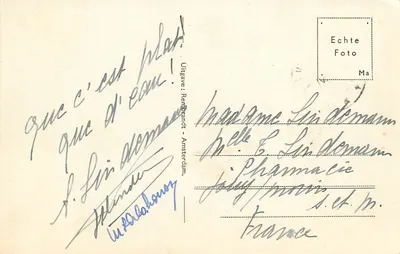 que c'est plat
que d'eau !
A. Lindemann
Uitgave: Rembrandt - Amsterdam.
Echte
Foto
Ma
Madame Lindemann
Melle E. Lindemann
Pharmacie
s. et m.
France